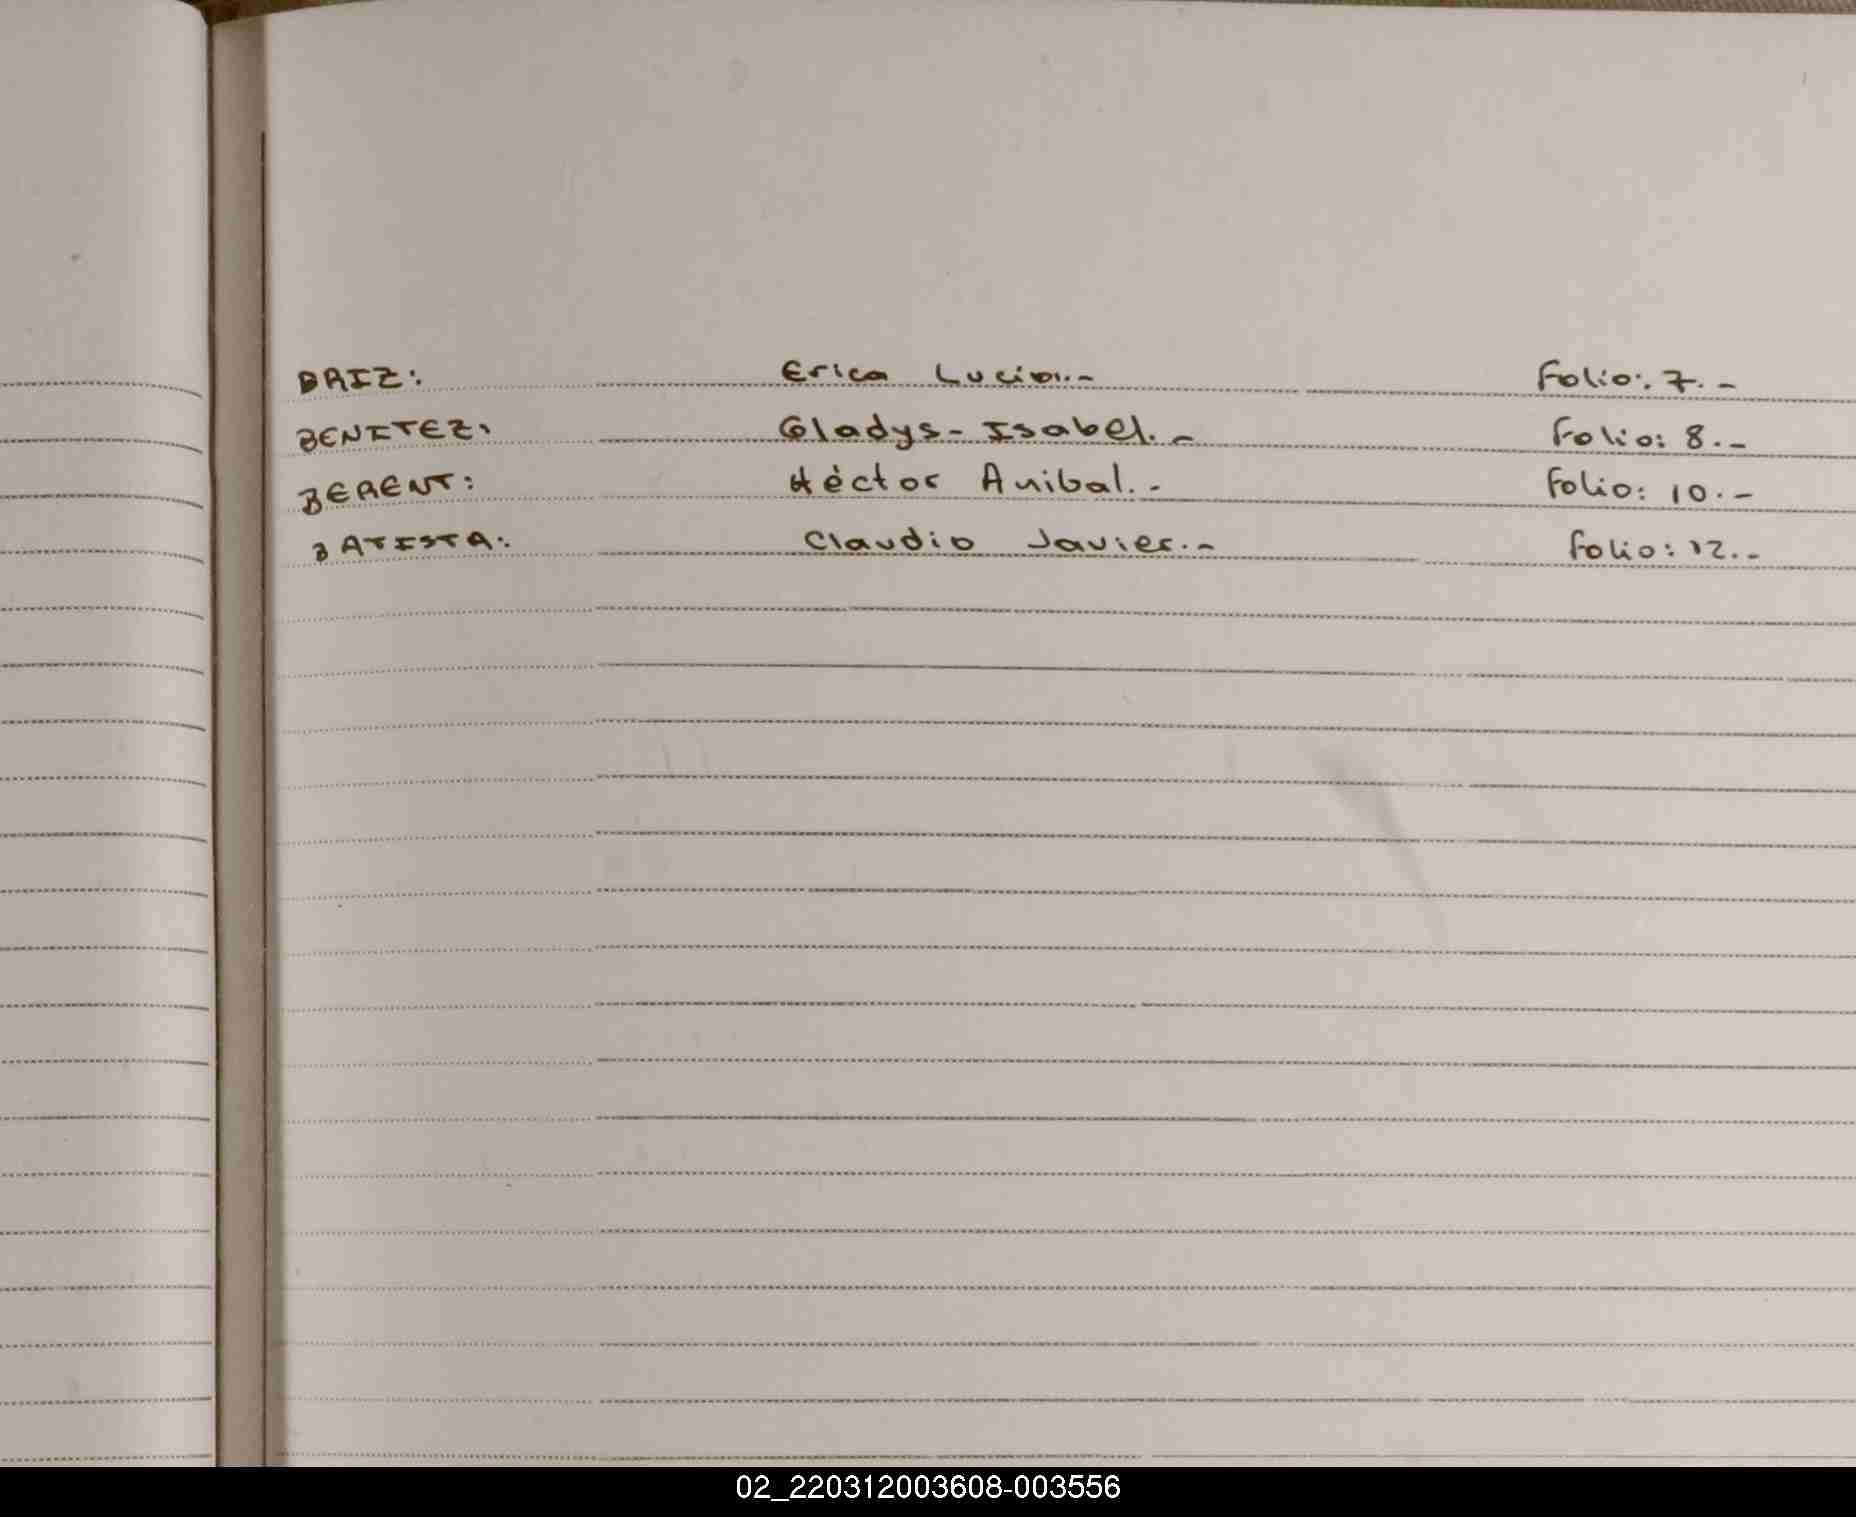 BRIZ: Erica Lucia.- Folio: 7.-
BENITEZ: Gladys-Isabel.- Folio: 8.-
BERENT: Héctor Anibal.- Folio: 10.-
BATISTA: Claudio Javier.- Folio: 12.-
02_220312003608-003556